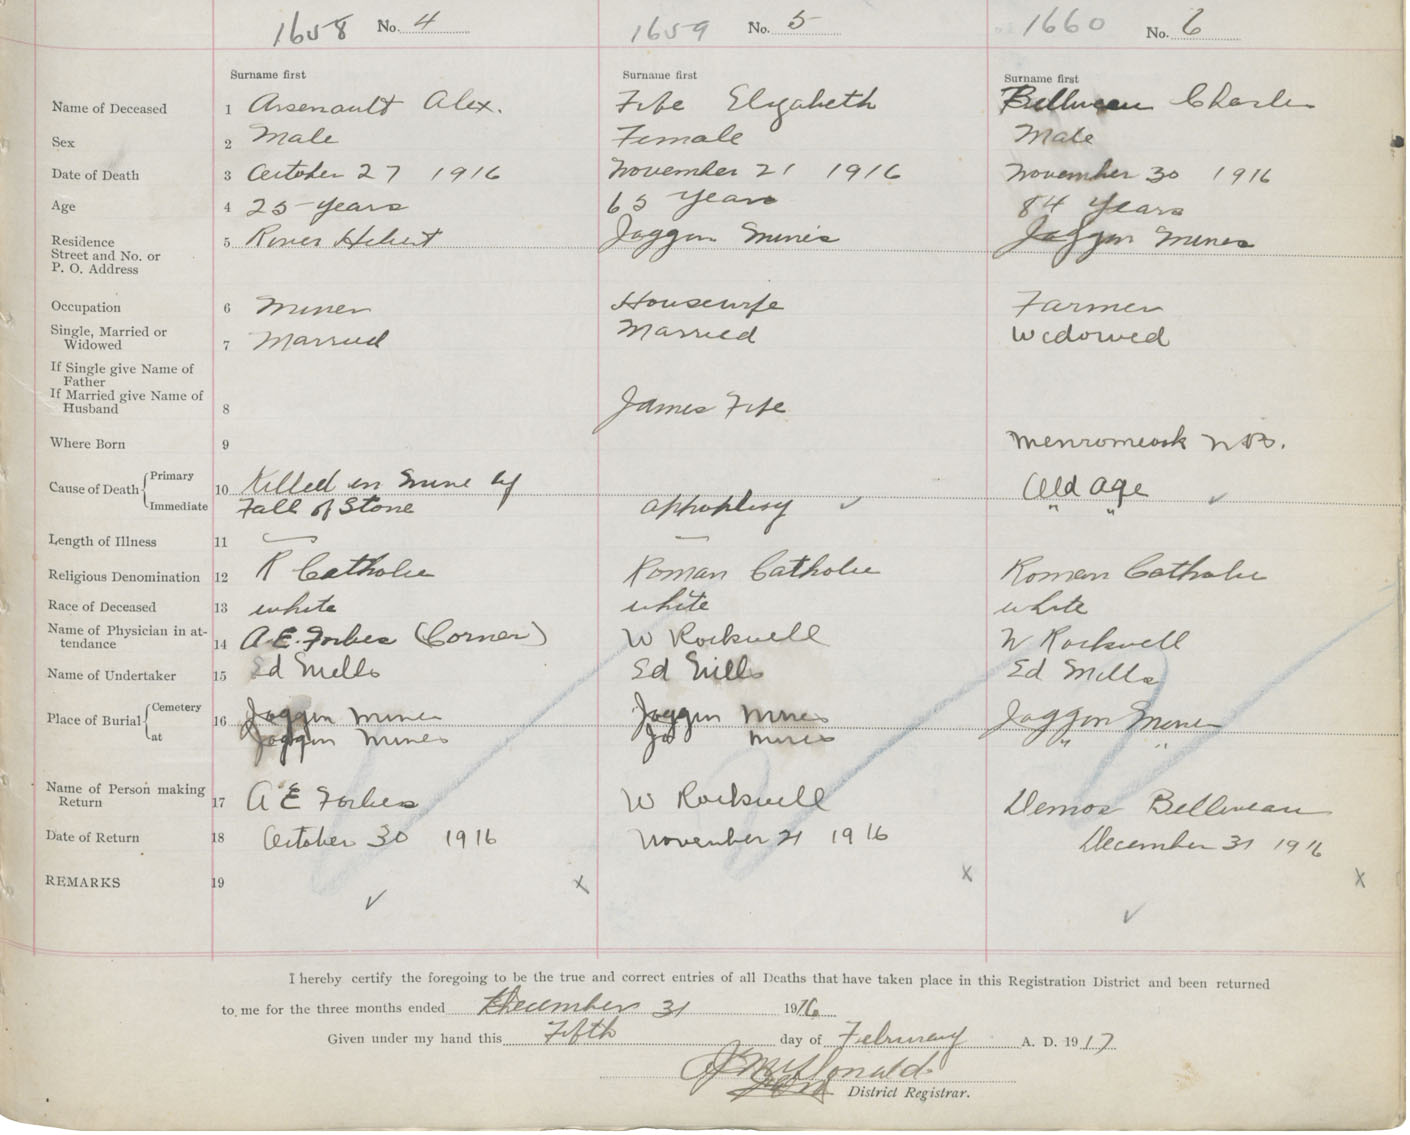 1658 No. 4 1659 No. 5 1660 No. 6
Surname first Surname first Surname first
Name of Deceased 1 Arsenault Alex. Fife Elizabeth Belliveau Charles
Sex 2 Male Female Male
Date of Death 3 October 27 1916 November 21 1916 November 30 1916
Age 4 25 years 65 years 84 years
Residence 5 River Hebert Joggin Mines Joggin Mines
Street and No. or
P. O. Address
Occupation 6 Miner Housewife Farmer
Single, Married or
Widowed 7 Married Married Widowed
If Single give Name of
Father
If Married give Name of
Husband 8 James Fife
Where Born 9 N.B.
Cause of Death { Primary 10 Killed in Mine by Old Age
Immediate Fall of Stone appoplexy " "
Length of Illness 11
Religious Denomination 12 R Catholic Roman Catholic Roman Catholic
Race of Deceased 13 white white white
Name of Physician in at-
tendance 14 A. E. Forbes (Corner) W Rockwell W Rockwell
Name of Undertaker 15 Ed Mills Ed Mills Ed Mills
Place of Burial { Cemetery 16 Joggin Mines Joggin Mines Joggin Mines
at Joggin Mines Jo Mines " "
Name of Person making
Return 17 A E Forbes W Rockwell Demos Belliveau
Date of Return 18 October 30 1916 November 21 1916 December 31 1916
REMARKS 19
I hereby certify the foregoing to be the true and correct entries of all Deaths that have taken place in this Registration District and been returned
to me for the three months ended December 31 1916
Given under my hand this Fifth day of February A. D. 1917
McDonald
District Registrar.